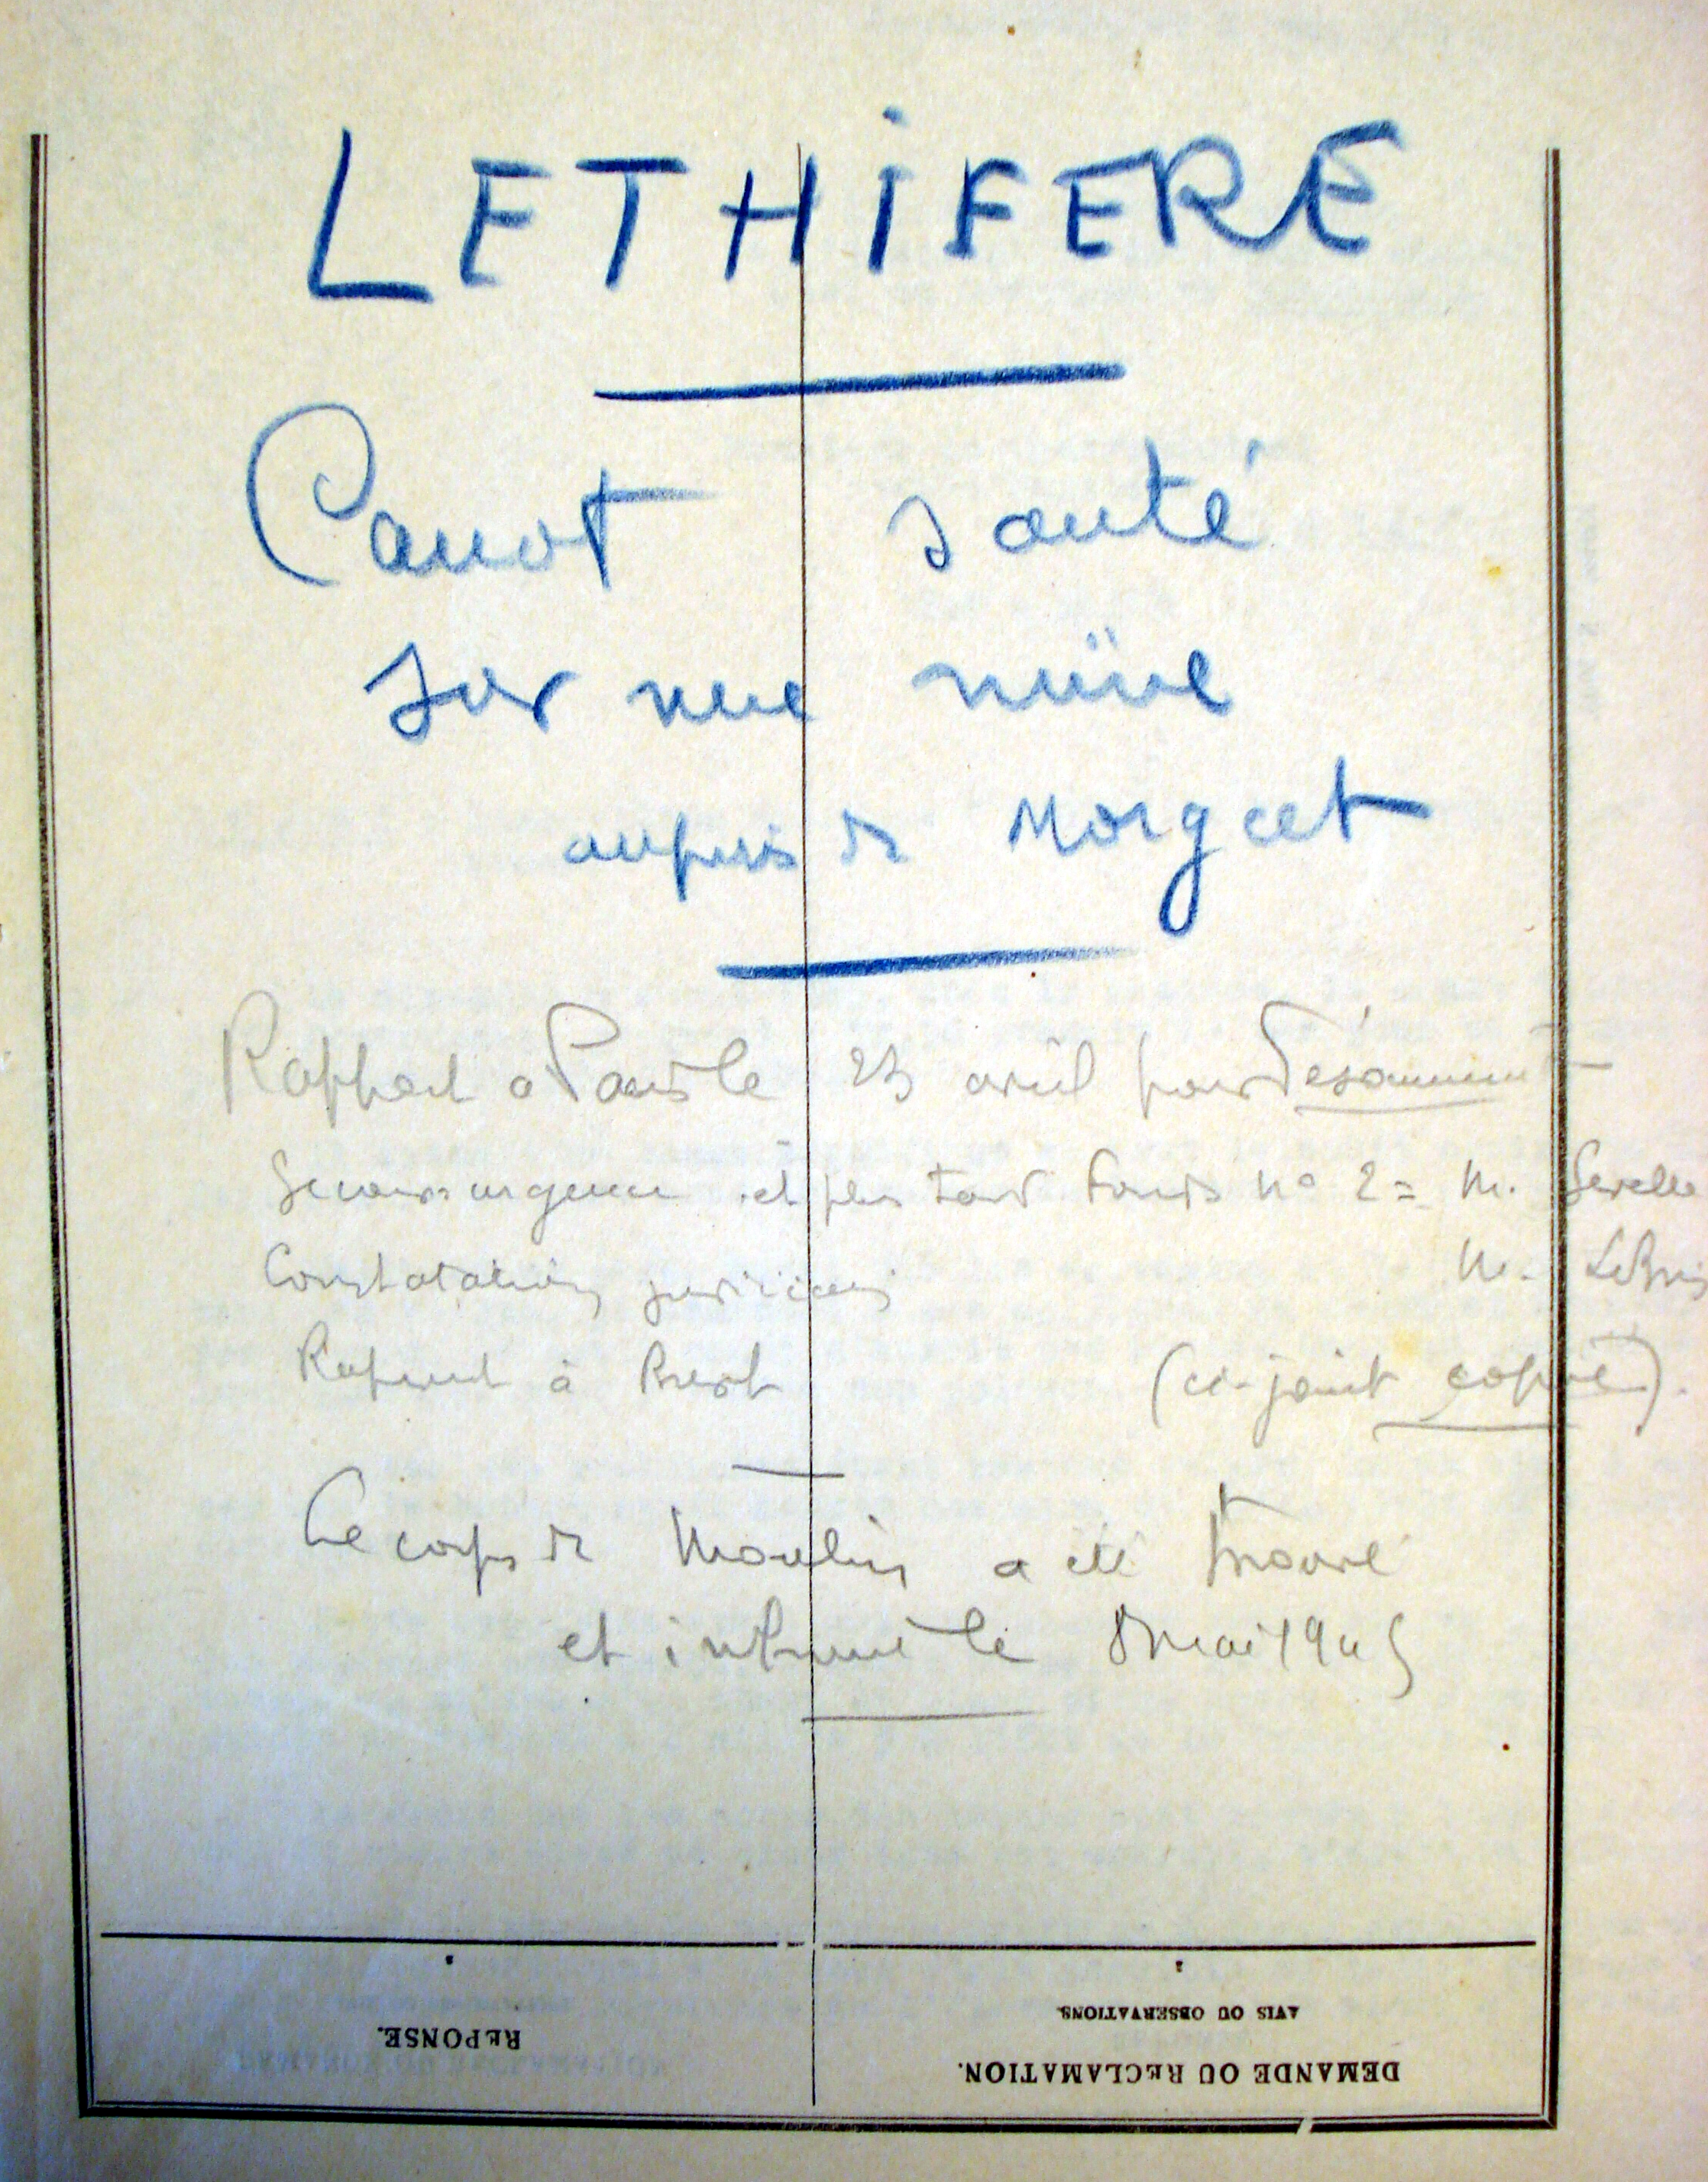 LETHIFERE
Canot sauté
sur une mine
auprès de Morgat
Rapport à Paris le 23 avril pour Désarmement
Secours urgence et plus tard Fonds no 2 = M.
Constatations juridiques M. LeBris
Rapport à Brest (ci-joint copie).
Le corps de Moulin a été trouvé
et inhumé le 8 mai 1945
REPONSE.
AVIS OU OBSERVATIONS
DEMANDE OU RECLAMATION.